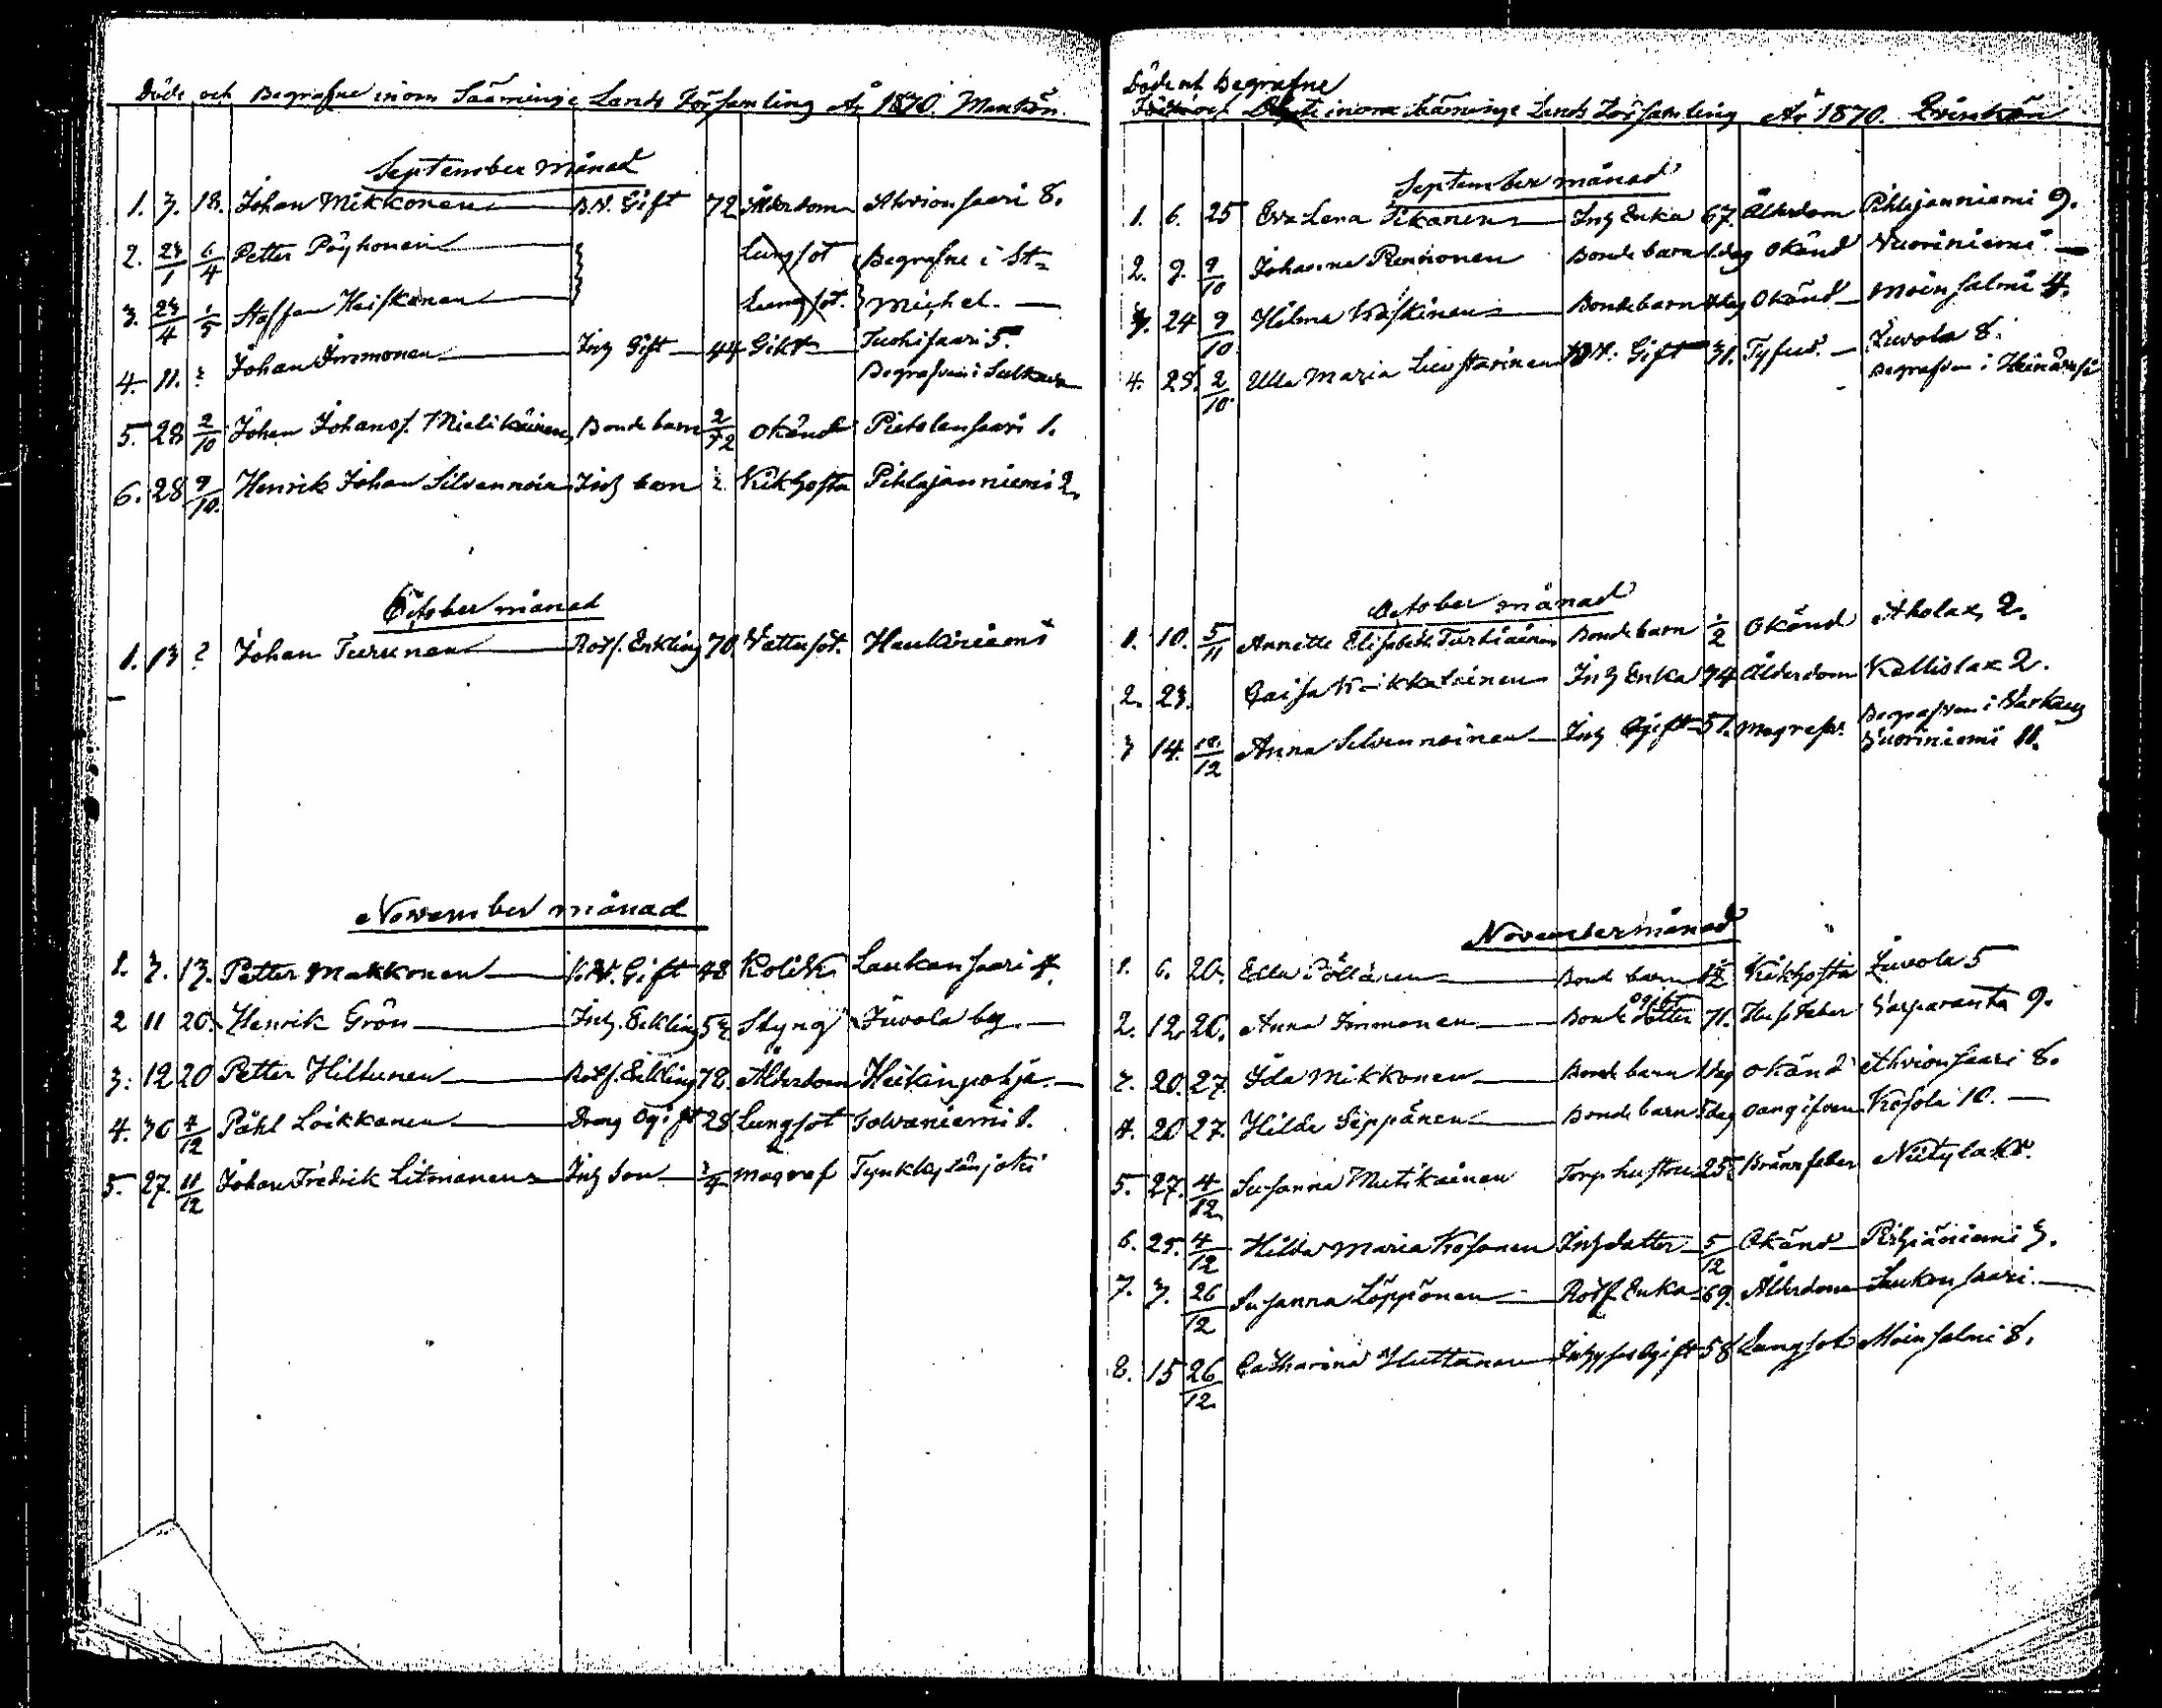 Döde och Begrafne inom Sääminge Lands Församling År 1870. Mankön.
September månad
1. 3. 18. Johan Mikkonen B.V. Gift 72 Ålderdom Ahvionsaari 8.
2. 23/1 6/4 Petter Pöyhonen Lungsot Begrafne i St-
3. 23/4 1/5 Staffan Heiskanen Lungsot. Michel.
4. 11. ? Johan Immonen Inh Gift 44 Gikt Tuohisaari 5.
Begrafven i Sulkava
5. 28 2/10 Johan Johans. Mielikäinen Bonde barn 2/72 Okänd Pietolansaari 1.
6. 28 9/10. Henrik Johan Silvennoin Inh barn Kikhosta Pihlajanniemi 2.
October månad
1. 13 ? Johan Turunen Rotf. Enkling 70. Vattusot. Haukiniemi
November månad
1. 3. 13. Petter Makkonen Gift 48 Kolik Laukansaari 4.
2 11 20. Henrik Grön Inh. Enkling 53. Styng Juvola by
3. 12 20 Petter Hiltunen Rotf. Enkling 72. Ålderdom Heikinpohja.
4. 30 4/12 Påhl Loikkanen Dreng Ogift 28. Lungsot Tolvaniemi 1.
5. 27. 11/12 Johan Fredrik Litmanen Inh Son Magref Tynkkylänjoki
Döde och Begrafne
inom Sääminge Lands Församling År 1870. Qvinkön
September månad
1. 6. 25 Eva Lena Tikanen Inh Enka 67. Ålderdom Pihlajanniemi 9.
2. 9. 9/10 Johanna Rennonen Bonde barn 1 dag Okänd Vuoriniemi.
3. 24 9/10. Hilma Käskinen Bondebarn dag Okänd Moinsalmi 4.
4. 29. 2/10. Ulla Maria Gift 31. Tyfus. Juvola 8.
Begrafven i Heinävesi
October månad
1. 10. 5/11 Annette Elisabeth Turtiainen Bonde barn 1/2 Okänd Aholax 2.
2. 23. Caisa Inh Enka 74 Ålderdom Kallislax 2.
Begrafven i Varkaus
3 14. 18/12 Anna Silvennoinen Inh Ogift 51. Magrefs. Vuoriniemi 11.
November månad
1. 6. 20. Edla Pöllänen Bonde barn 1/2 Kikhosta Juvola 5
2. 12. 26. Anna Immonen Bonde ogift dotter 71. Varparanta 9.
3. 20. 27. Ida Mikkonen Bonde barn 1 dag Okänd Ahvionsaari 8.
4. 20 27. Hilda Seppänen Bonde barn dag Oangifven Kosola 10.
5. 27. 4/12. Susanna Mutikainen Torp hustru 25. Brännfeber Niitylaks.
6. 25. 4/12 Hilda Maria Kosonen Inh dotter 5/12 Okänd Pihjäniemi 3.
7. 3. 26/12 Susanna Löppönen Rotf. Enka 69. Ålderdom Laukansaari.
8. 15 26/12. Catharina Huttunen Ogift 58 Lungsot Moinsalmi 8.